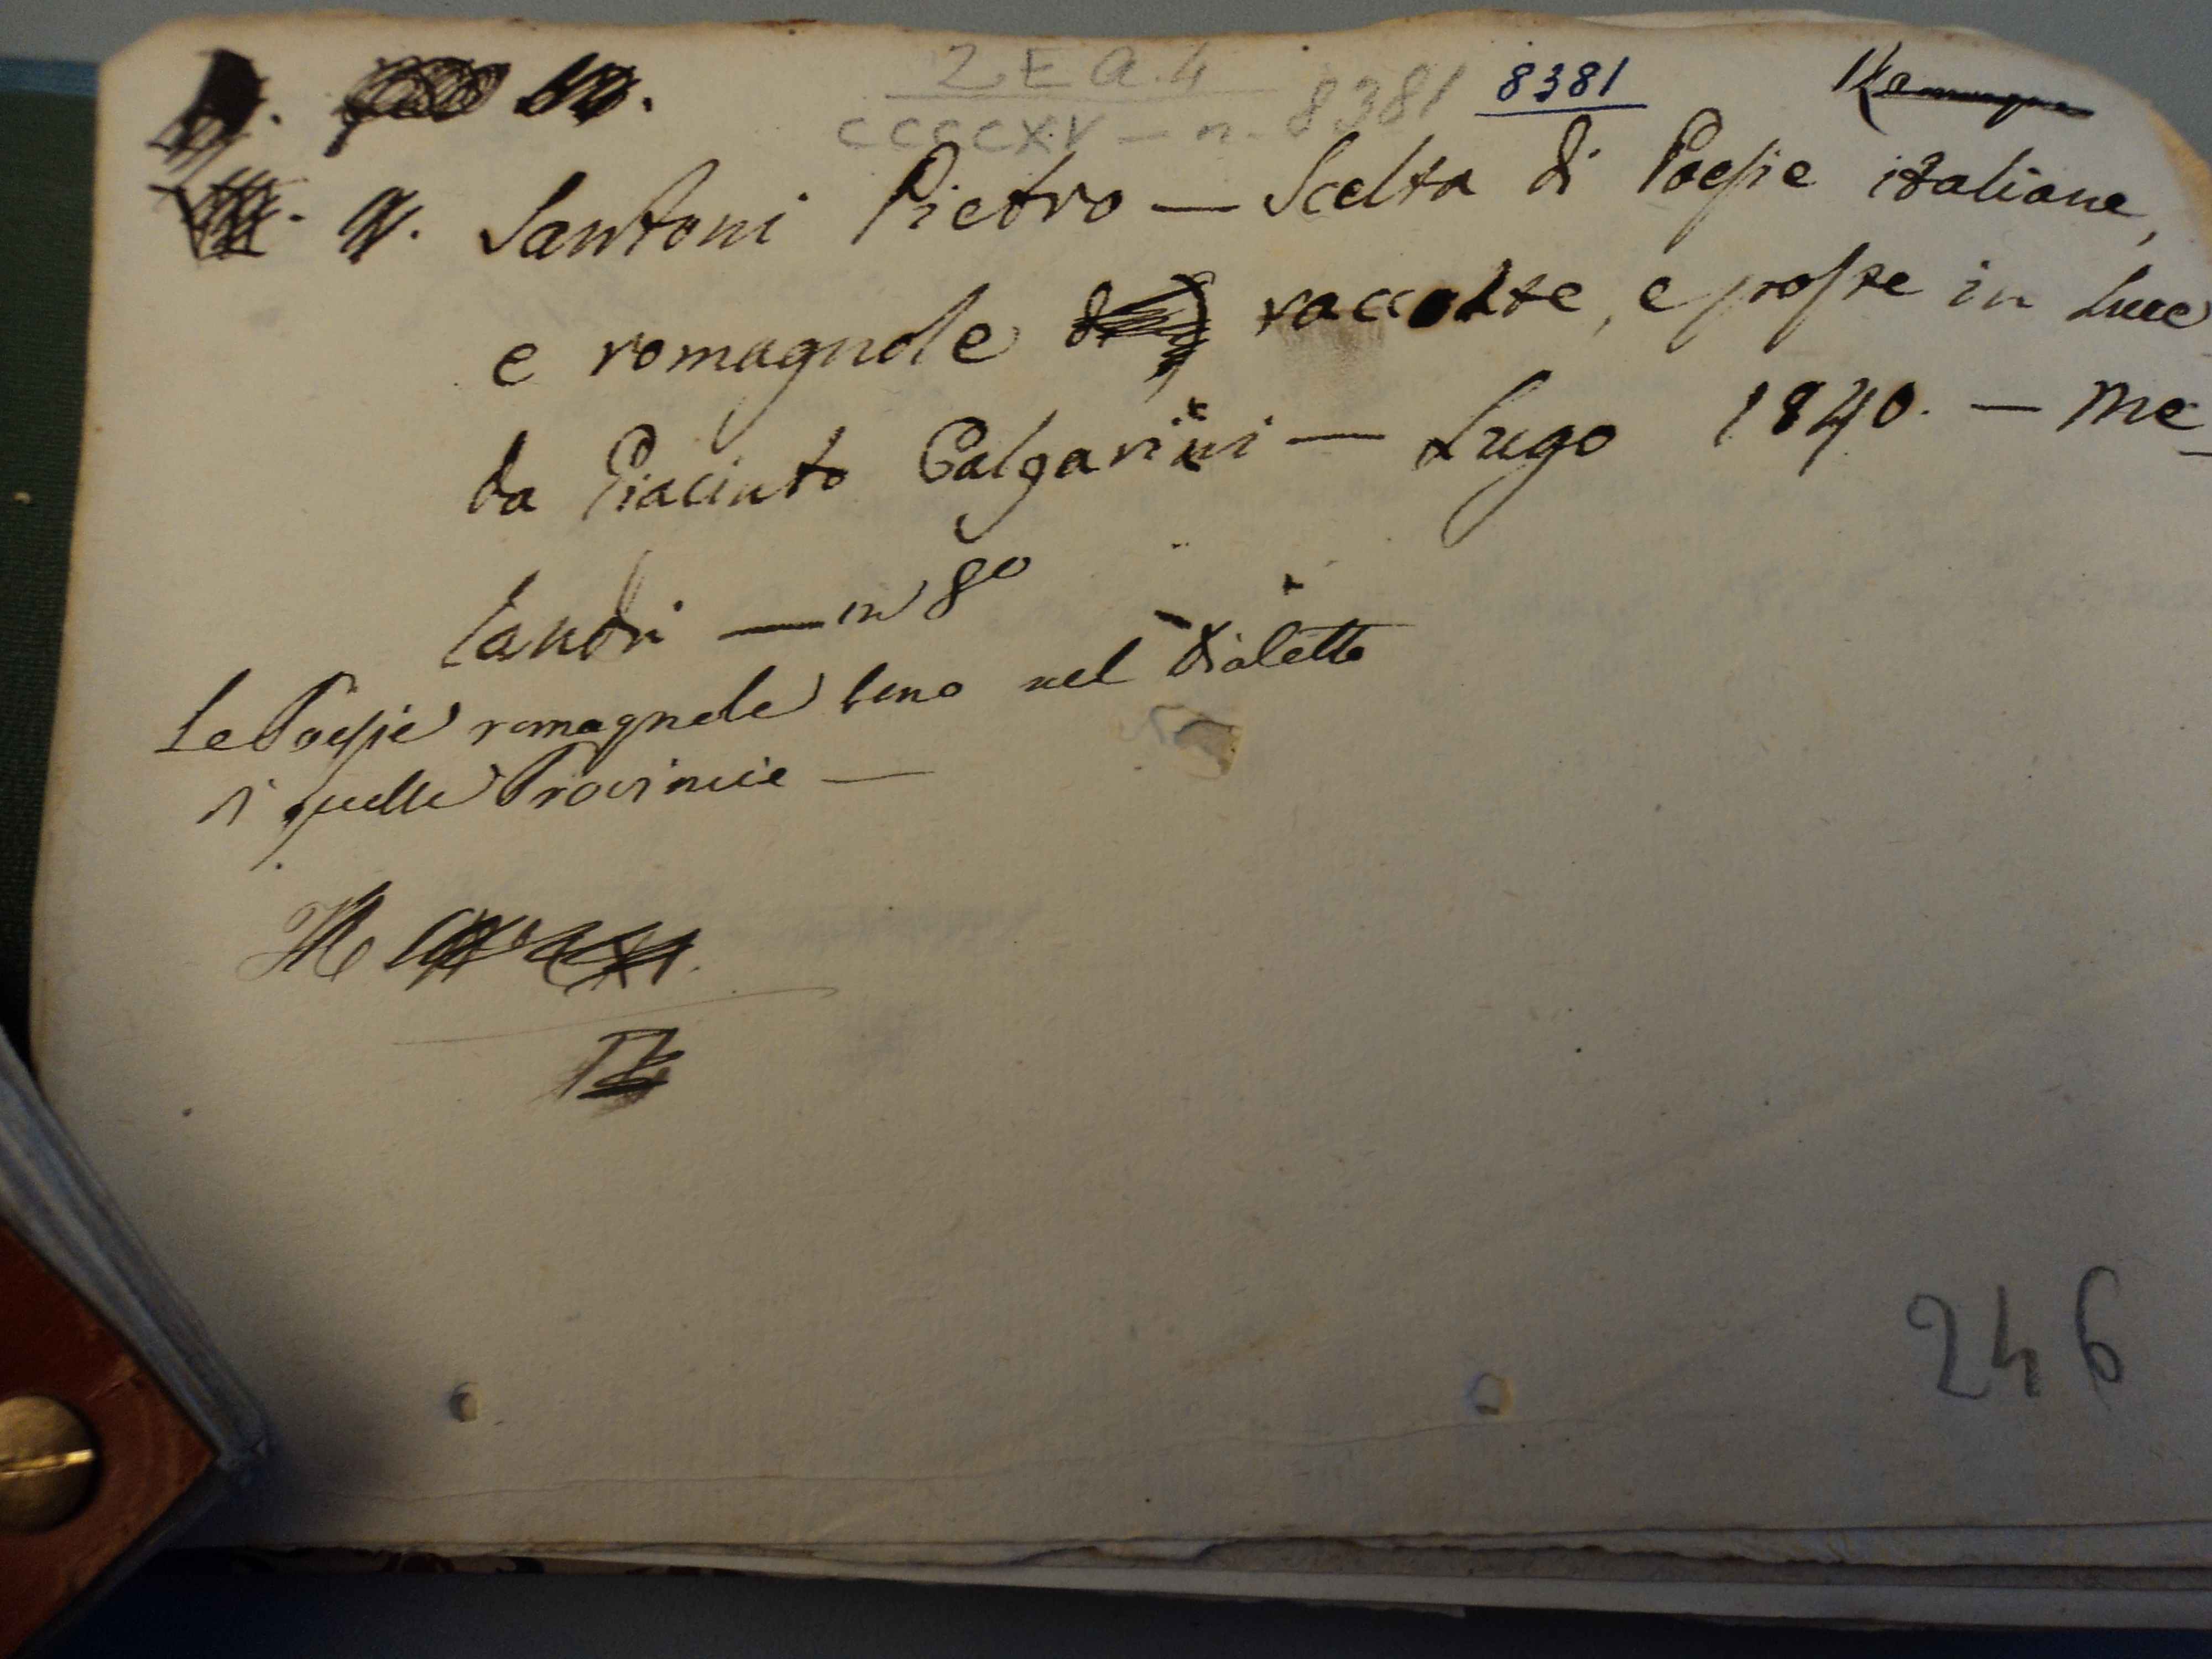 2 E a. 4
CCCCXV — n. 8381 8381 Romagna
Santoni Pietro — Scelta di Poesie italiane,
e romagnole raccolte, e poste in luce
da Giacinto Calgarini — Lugo 1840. — Me-
landri — in 8o
Le Poesie romagnole sono nel dialetto
di quelle Provincie —
246